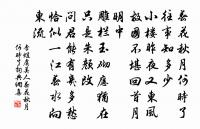 春花秋月何時了
往事知多少
小樓昨夜又東風
故國不堪回首月
明中
雕栏玉砌應猶在
只是朱顏改
問君能有幾多愁
恰似一江春水向
東流
李煜虞美人春花秋月
何時了